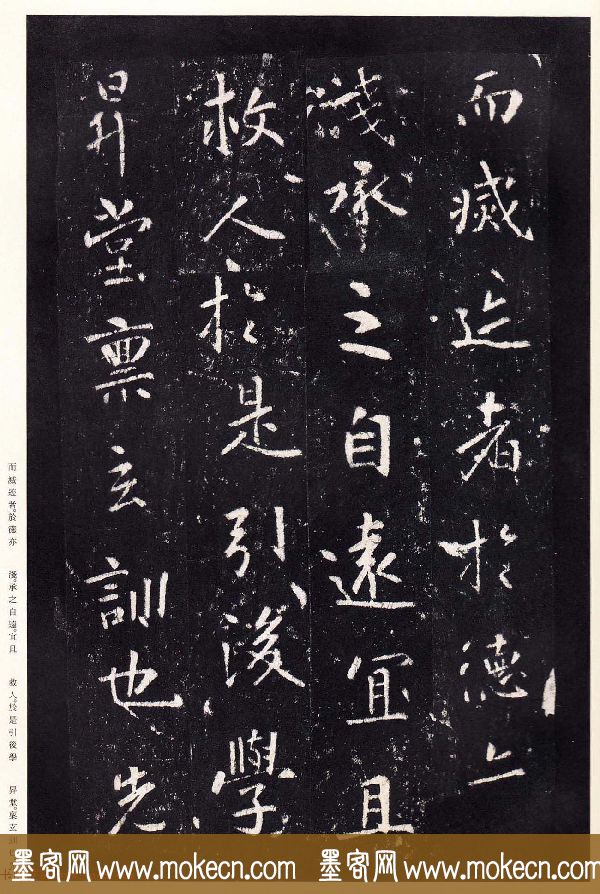 而滅迹者於德亦
淺承之自遠宜具
救人於是引後學
昇堂稟玄訓也先
而滅迹者。於德亦 淺。承之自遠。宜具 救人。於是引後學 昇堂。稟玄訓
墨客网 www.mokecn.com 墨客网 www.mokecn.com